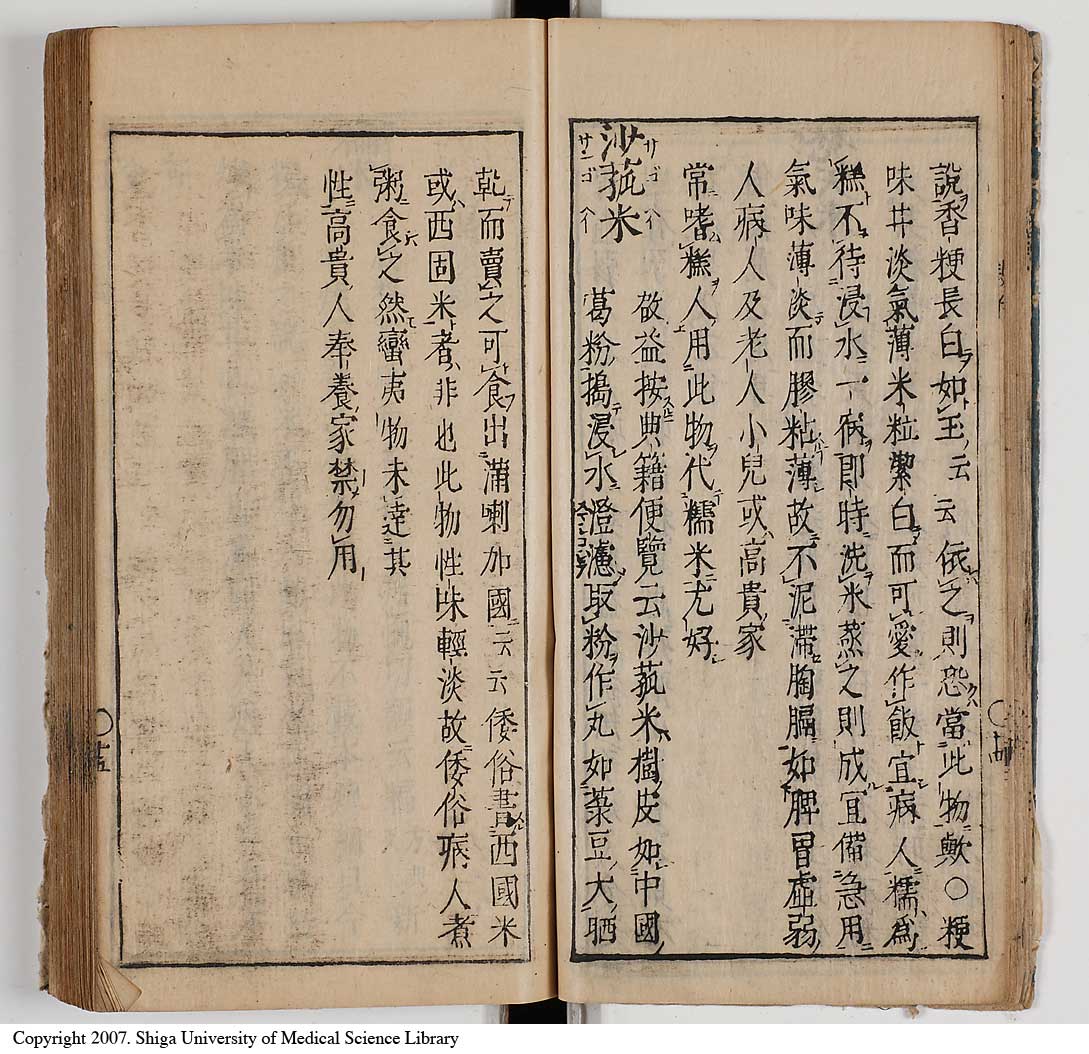 說香粳長白如玉云云依之則恐當此物歟○粳
味甘淡氣薄米粒潔白而可愛作飯宜病人糯爲
糕不待浸水一宿即時洗米蒸之則成宜備急用
氣味薄淡而膠粘薄故不泥滯胸膈如脾胃虛弱
人病人及老人小兒或高貴家
常嗜糕人用此物代糯米尤好
沙菰米
サゴ
サンゴ
敬益按典籍便覽云沙菰米樹皮如中國
葛粉搗浸水澄濾取粉作丸如菉豆大晒
十四
乾而賣之可食出滿喇加國云云倭俗書西國米
或西固米者非也此物性味輕淡故倭俗病人煮
粥食之然蠻夷物未達其
性高貴人奉養家禁勿用
十五
Copyright 2007. Shiga University of Medical Science Library